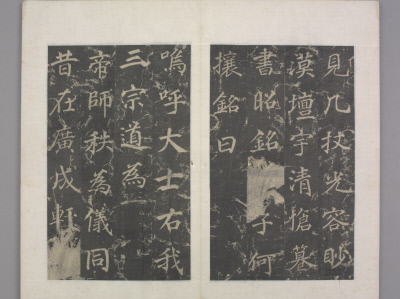 見几杖光容眇
漠壇宇清愴
書昭銘子何
攘銘曰
嗚呼大士右我
三宗道為
帝師秩為儀同
昔在廣成軒